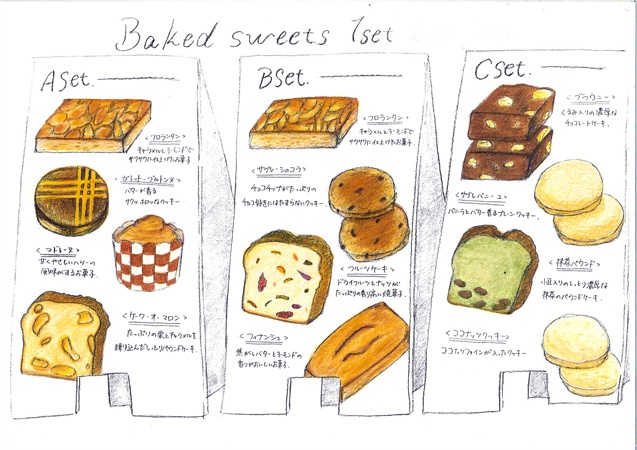 Baked sweets 1set
A Set.
<フロランタン>
キャラメルとアーモンドで
サクサクに仕上げたお菓子
<ガレット・ブルトンヌ>
バターが香る
サクッホロッなクッキー
<マドレーヌ>
甘くやさしいバターの
風味がするお菓子.
<ケーク・オ・マロン>
たっぷりの栗とキャラメルを
練り込んだしっとりパウンドケーキ
B Set.
<フロランタン>
キャラメルとアーモンドで
サクサクに仕上げたお菓子.
<サブレ・ショコラ>
チョコチップがたっぷりの
チョコ好きにはたまらないクッキー.
<フルーツケーキ>
ドライフルーツとナッツが
たっぷりの香り高い焼菓子.
<フィナンシェ>
焦がしバターとアーモンドの
香りがおいしいお菓子.
C Set.
<ブラウニー>
くるみ入りの濃厚な
チョコレートケーキ.
<サブレバニーユ>
バニラとバター香るプレーンクッキー.
<抹茶パウンド>
小豆入りのしっとり濃厚な
抹茶のパウンドケーキ.
<ココナッツクッキー>
ココナッツファインが入ったクッキー